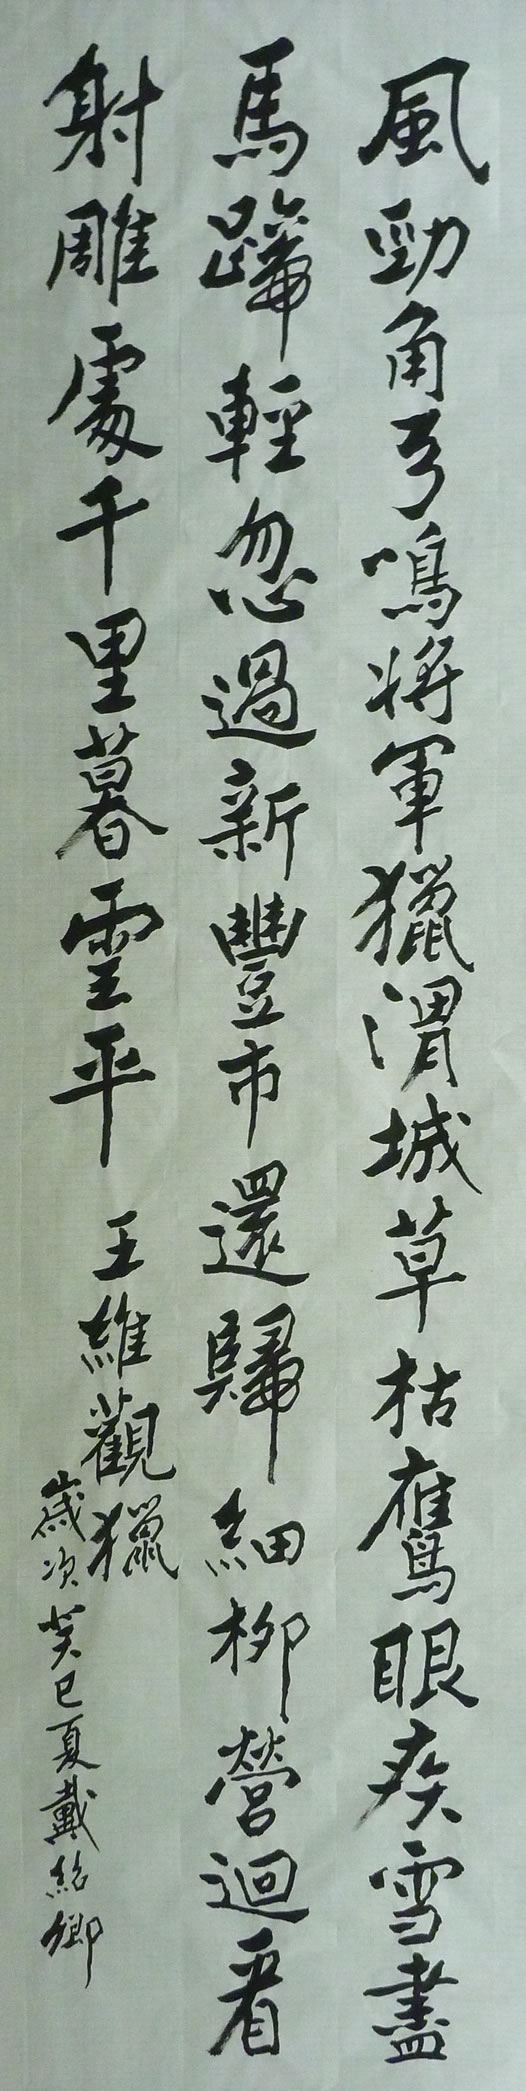 風勁角弓鳴將軍獵渭城草枯鷹眼疾雪盡
馬蹄輕忽過新豐市還歸細柳營迴看
射雕處千里暮雲平
王維觀獵
歲次癸巳夏戴紹卿